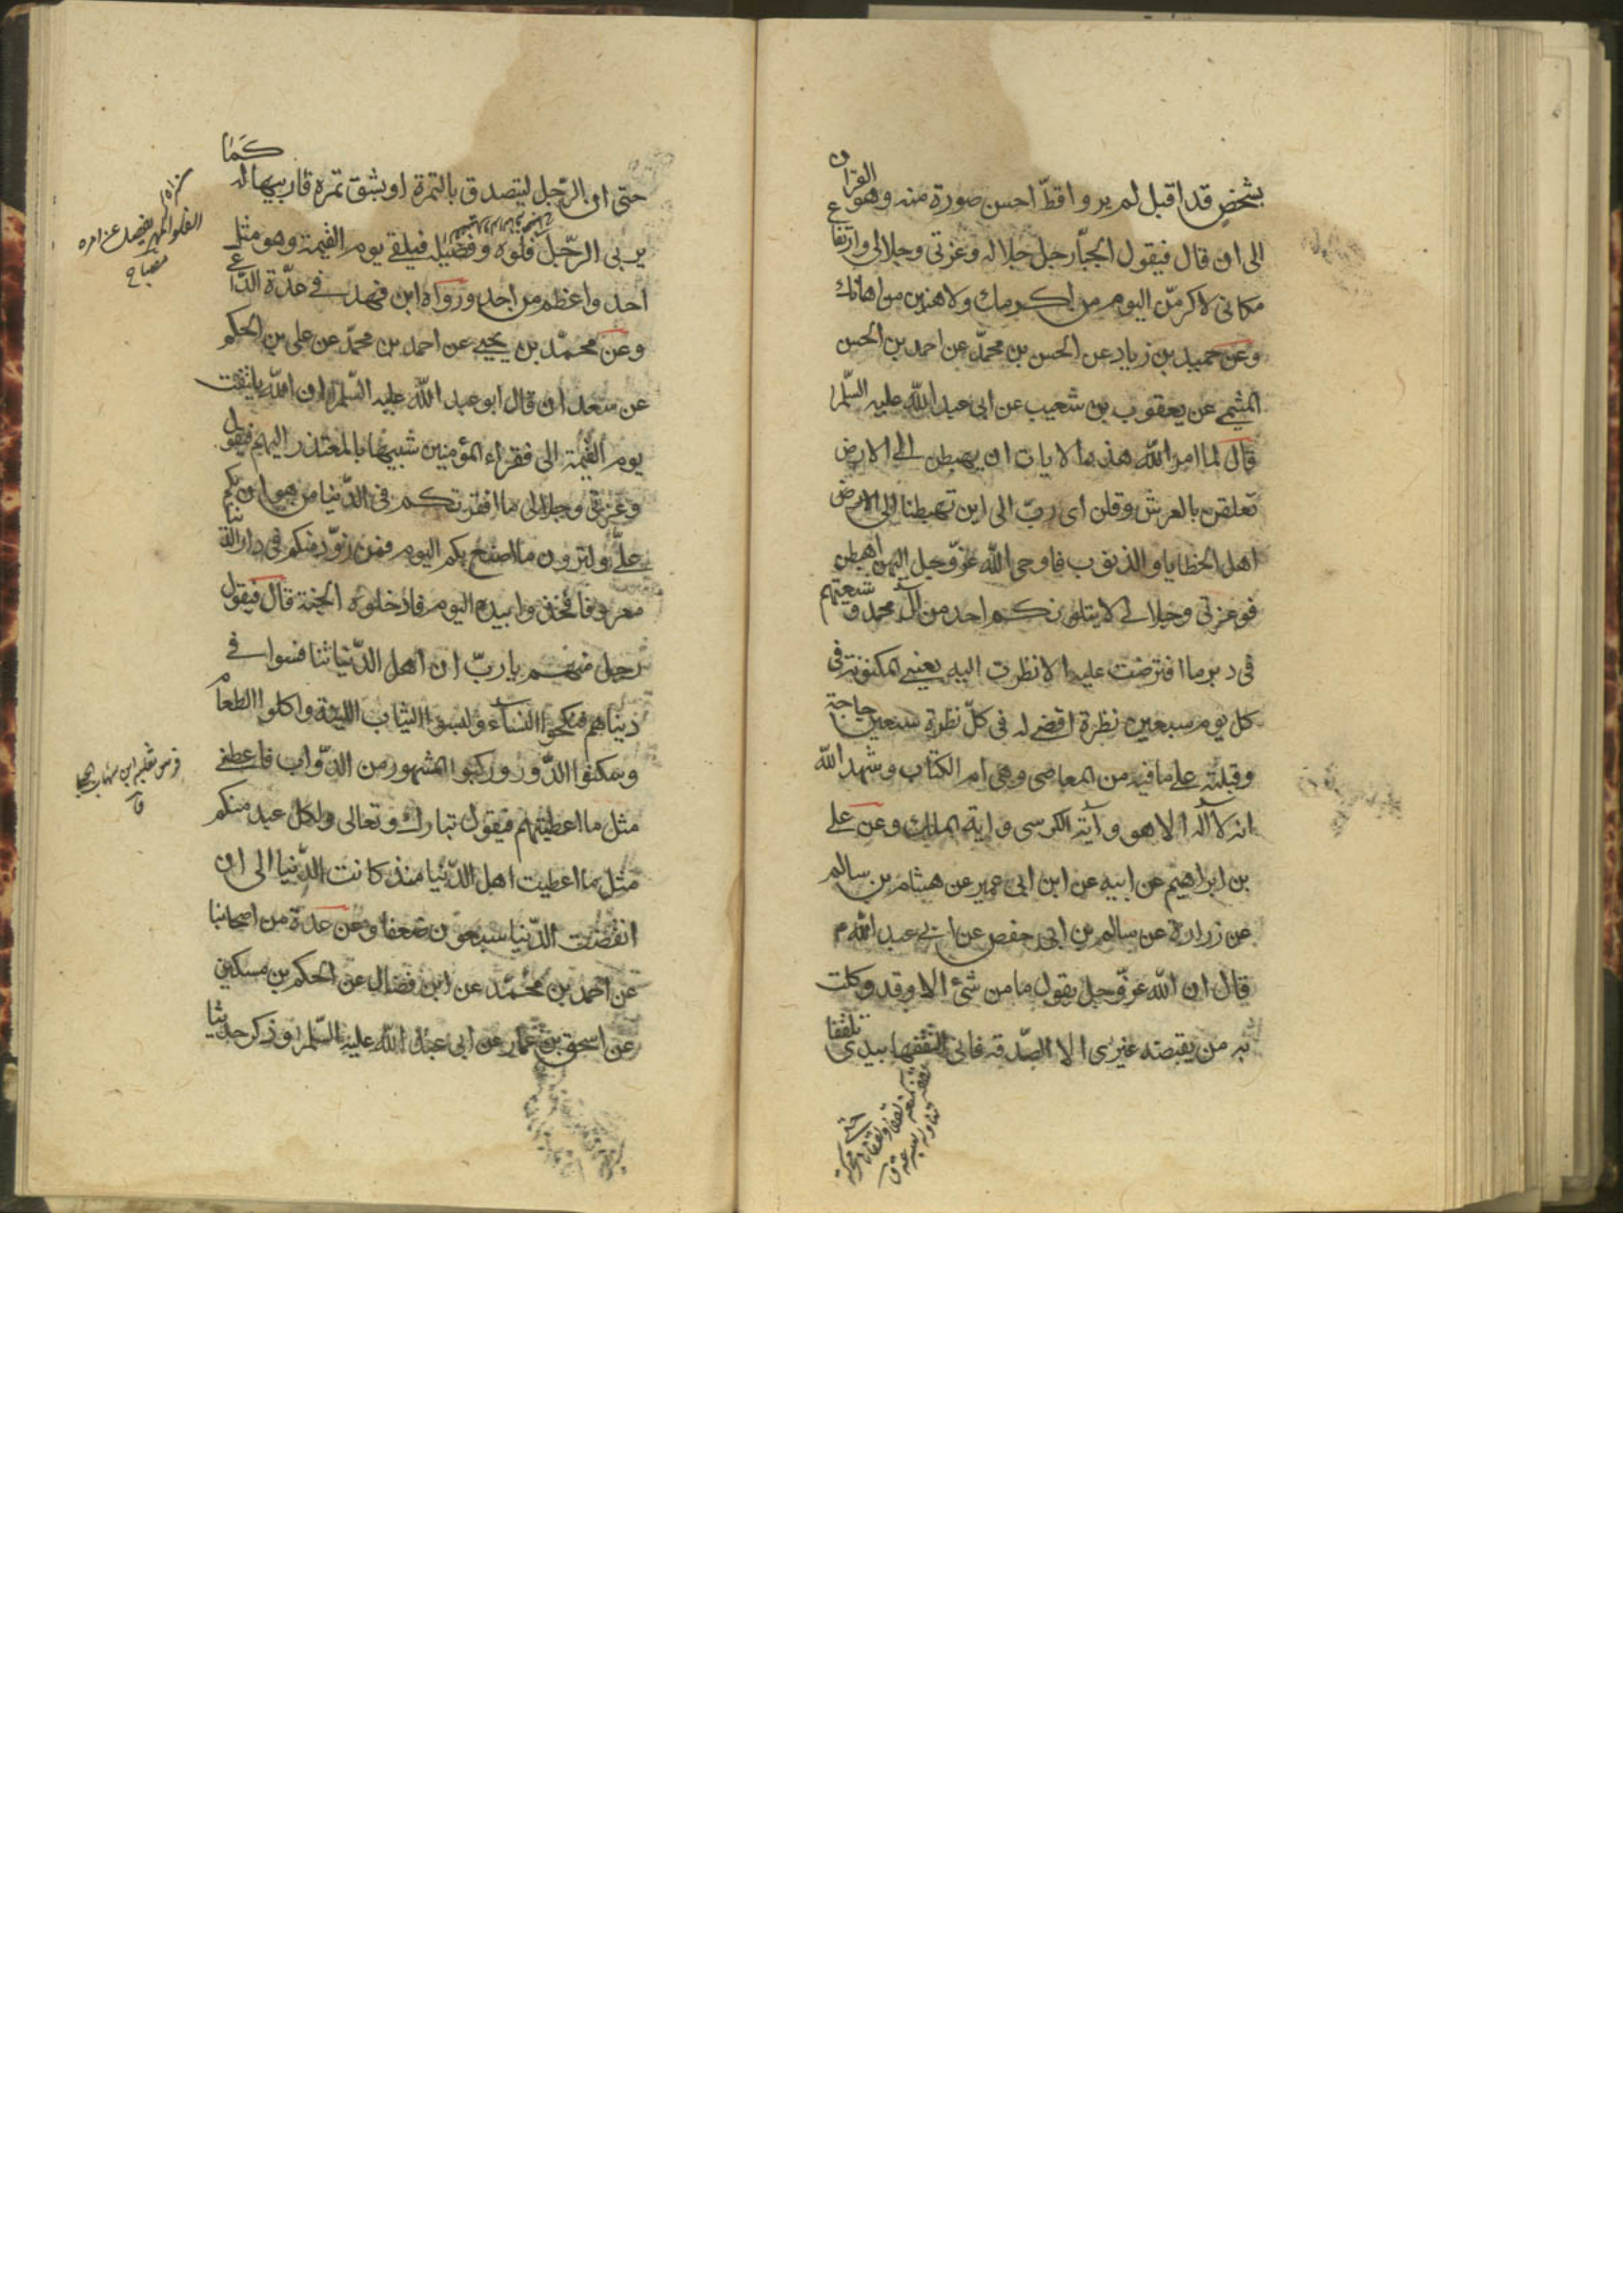 بشخص قد اقبل لم يروا قطّ احسن صورة منه وهو القران
الى ان قال فيقول الجبّار جل جلاله وعزتى وجلالى وارتفاع
مكانى لاكرمنّ اليوم من اكرمك ولاهنين من اهانك
وعن حميد بن زياد عن الحسن بن محمّد عن احمد بن الحسن
الميثمى عن يعقوب بن شعيب عن ابى عبد الله عليه السّلم
قال لما امر الله هذه الايات ان يهبطن الى الارض
تعلقن بالعرش وقلن اى ربّ الى اين تهبطنا الى الارض
اهل الخطايا والذنوب فاوحى الله عزّوجل اليهن اهبطن
فوعزتى وجلالى لا يتلوكن احد من آل محمد وشيعتهم
فى دبر ما افترضت عليه الا نظرت اليه بعينى المكنونة فى
كل يوم سبعين نظرة اقضى له فى كلّ نظرة سبعين حاجة
وقبلته على ما فيه من المعاصى وهى ام الكتاب وشهد الله
انه لا آله الا هو وآية الكرسى واية الملك وعن على
بن ابراهيم عن ابيه عن ابن ابى عمير عن هشام بن سالم
عن زرارة عن سالم بن ابى حفص عن ابى عبد الله م
قال ان الله عزّوجل يقول ما من شئ الا وقد وكلت
به من يقبضه غيرى الا الصّدقة فانى اتلقفها بيدى تلقفا
حتى ان الرّجل ليتصدق بالتمرة او بشق تمره فاربيها له كما
يربى الرّجل فلوه وفصيله فيلقى يوم القيمة وهو مثل
احد واعظم من احد ورواه ابن فهد فى عدّة الدّاعى
وعن محمّد بن يحيى عن احمد بن محمّد عن على بن الحكم
عن سعدان قال ابو عبد الله عليه السّلم ان الله يلتفت
يوم القيمة الى فقراء المؤمنين شبيها بالمعتذر اليهم فيقول
وعزتى وجلالى ما افقرتكم فى الدّنيا من هوان بكم
علىّ ولترون ما اصنع بكم اليوم فمن زوّد منكم فى دار الدنيا
معروفا فخذوا بيده اليوم فادخلوه الجنة قال فيقول
رجل منهم يا ربّ ان اهل الدّنيا تنافسوا فى
دنياهم فنكحوا النساء ولبسوا الثياب اللينة واكلوا الطعام
وسكنوا الدّور وركبوا المشهور من الدّواب فاعطنى
مثل ما اعطيتهم فيقول تبارك وتعالى ولكل عبد منكم
مثل ما اعطيت اهل الدّنيا منذ كانت الدّنيا الى ان
انقضت الدّنيا سبعون ضعفا وعن عدة من اصحابنا
عن احمد بن محمّد عن ابن فضال عن الحكم بن مسكين
عن اسحق بن عمار عن ابى عبد الله عليه السّلم وذكر حديثا
الفلو المهر يفصل عن امه
مصباح